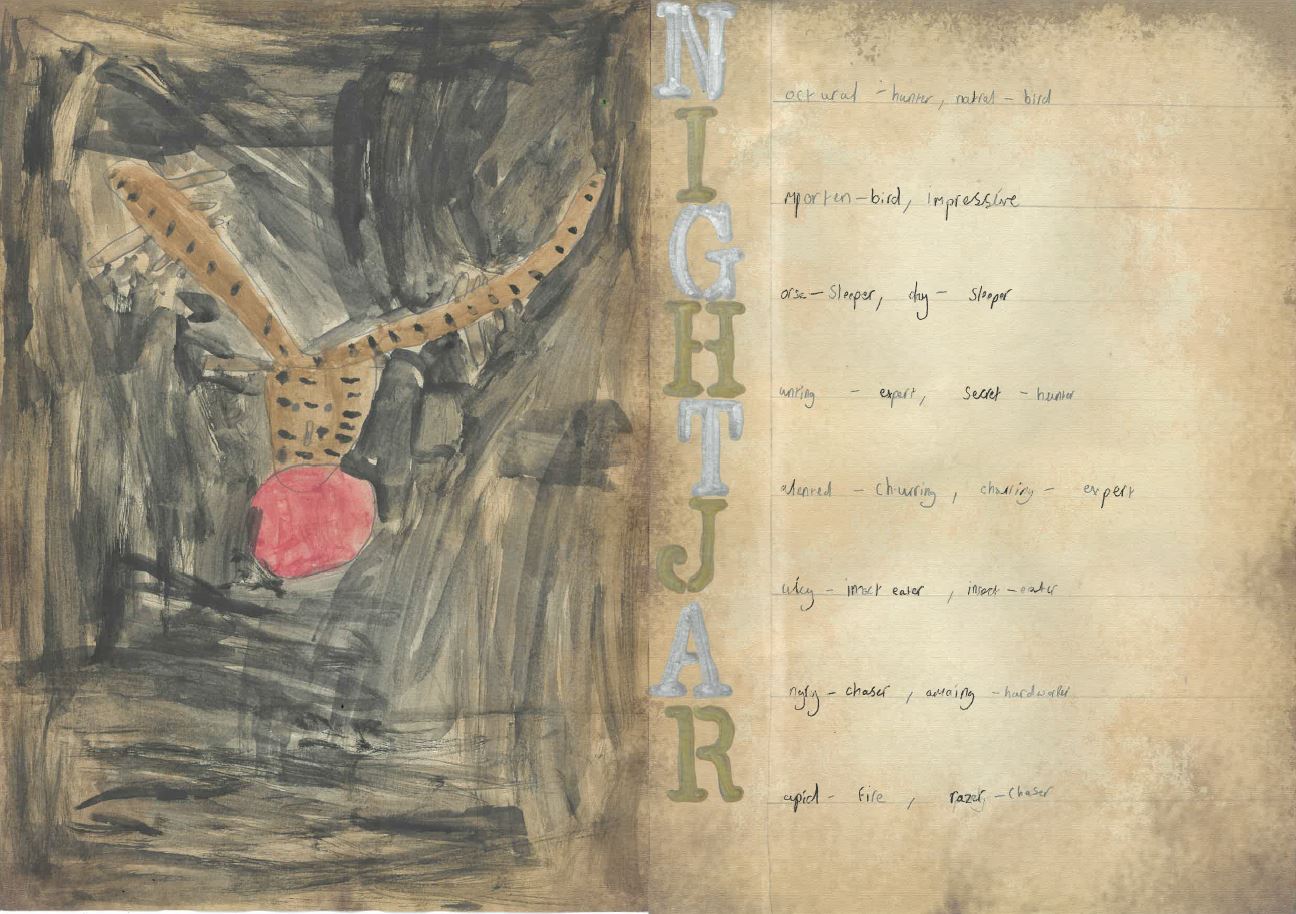 N octural - hunter, natral - bird
I mporten - bird, impressive
G orse - Sleeper, day - Sleeper
H unting - expert, Secret - hunter
T alented - churring, churring - expert
J uicy - insect eater, insect - eater
A ngry - chaser, amaing - hardworker
R apid - fire, razer - chaser